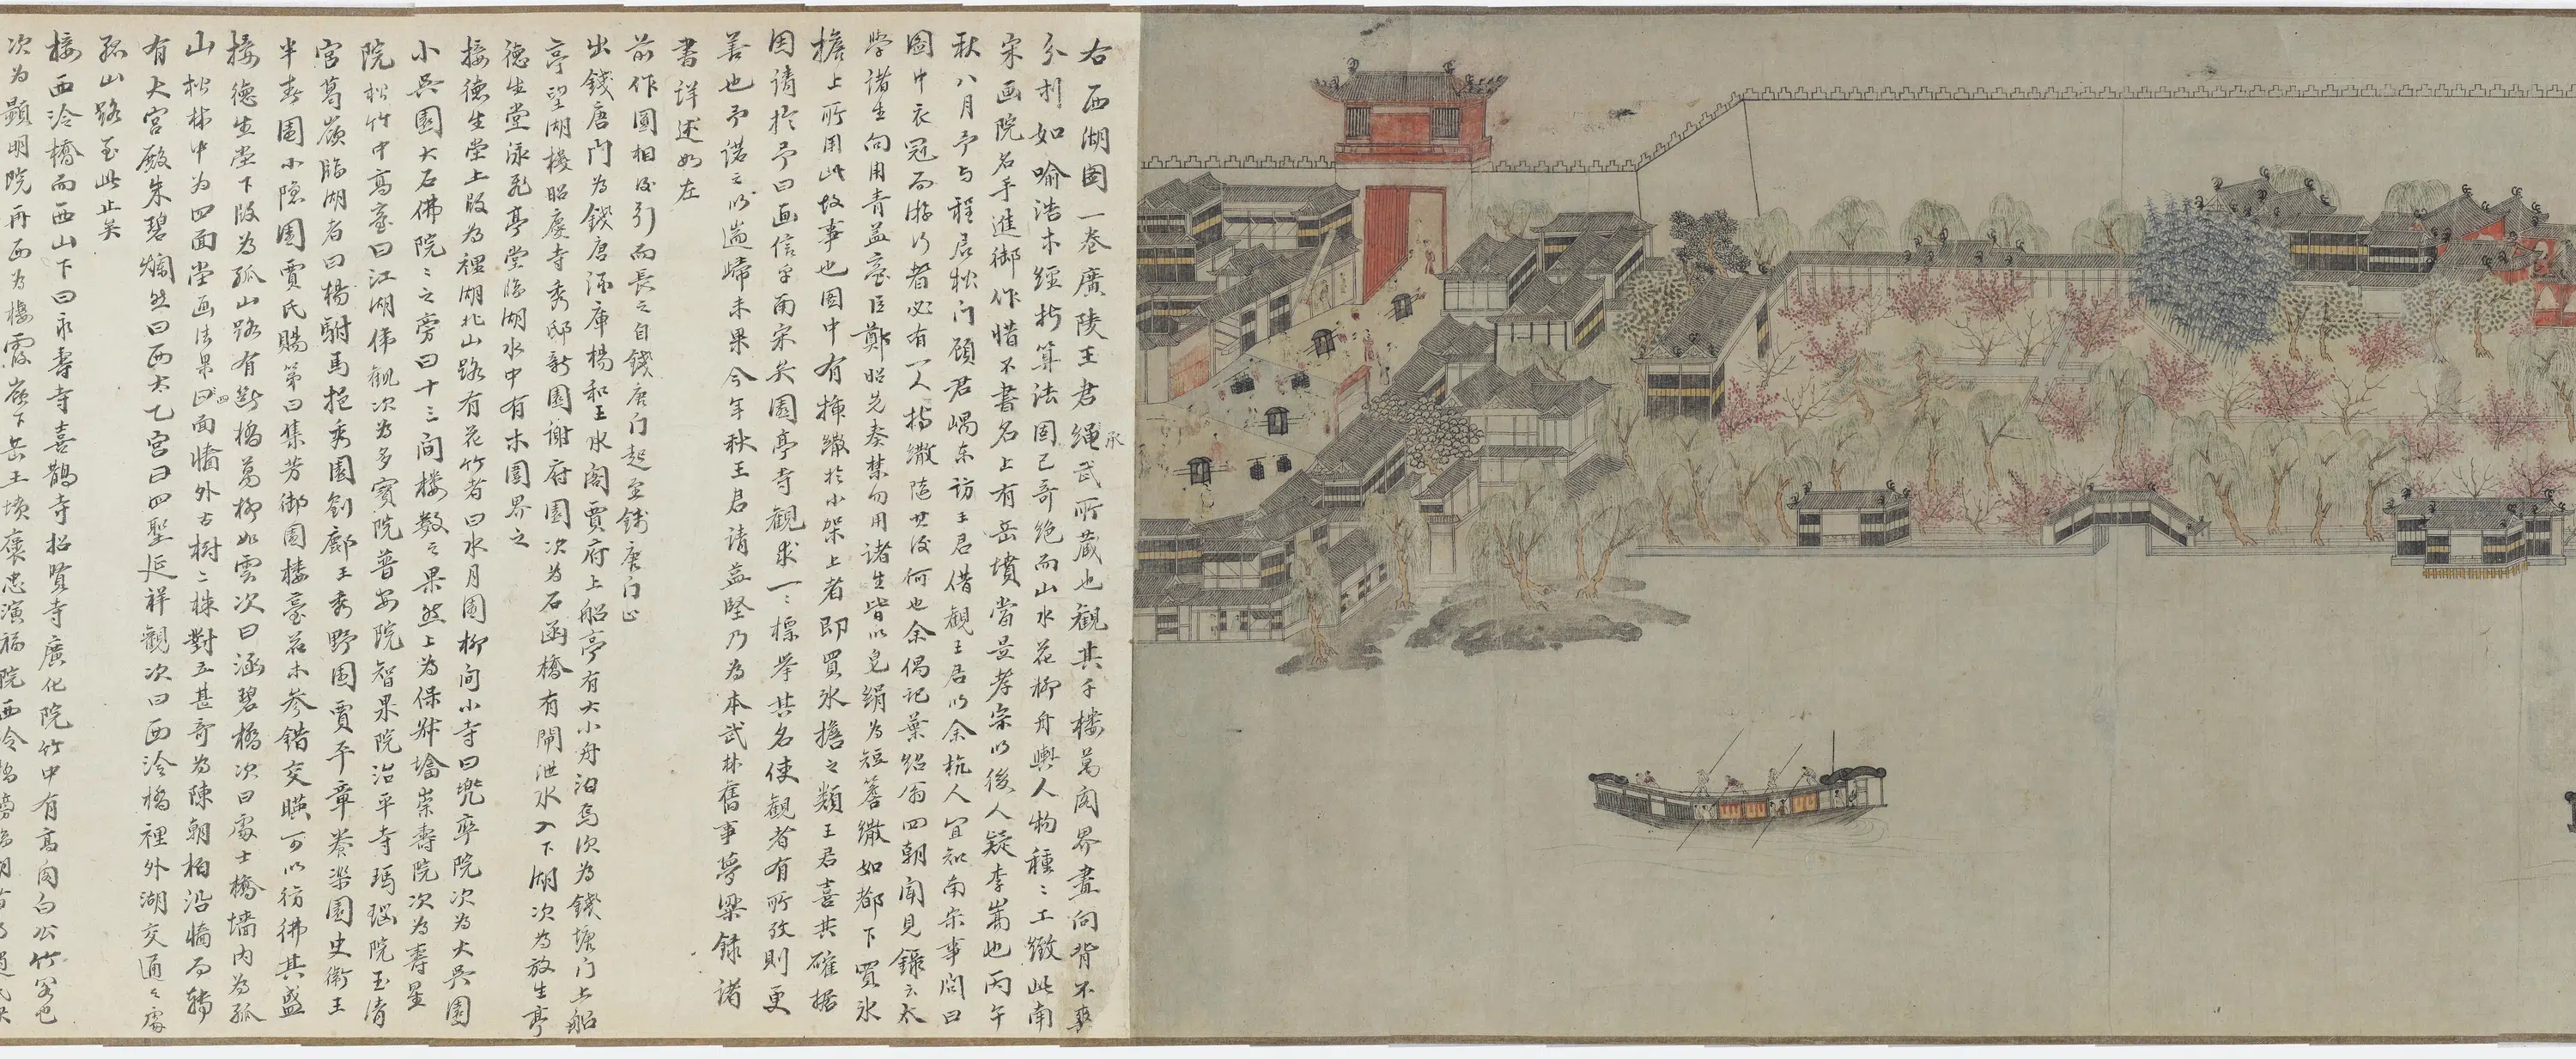 右西湖圖一卷廣陵王君繩武所藏也觀其千樓萬閣界畫向背不爽
承
分刌如喻浩木經折算法固已奇絕而山水花柳舟輿人物種〻工緻此南
宋画院名手進御作惜不書名上有岳墳當是孝宗以後人疑李嵩也丙午
秋八月予与程君松門顧君嵎东訪王君借觀王君以余杭人宜知南宋事問曰
圖中衣冠而游行者必有一人持繖隨其後何也余偶记葉紹翁四朝聞見錄云太
學諸生向用青盖臺臣鄭昭先奏禁勿用諸生皆以皂絹為短簷繖如都下賣氷
擔上所用此故事也圖中有揷繖於小架上者即買氷擔之類王君喜其確据
因請於予曰画信乎南宋矣園亭寺觀求一〻標举其名使觀者有所攷則更
善也予诺之以遄歸未果今年秋王君请益堅乃為本武林舊事夢梁録诸
書详述如左
前作圖相沿引而長之自錢唐门起至錢唐门止
出錢唐門為錢唐酒庫楊和王水閣賈府上船亭有大小舟泊焉次為錢塘门上船
亭望湖楼昭慶寺秀邸新園谢府園次为石函橋有閘泄水入下湖次为放生亭
德生堂泳飛亭堂臨湖水中有木圍界之
接德生堂上段為裡湖北山路有花竹者曰水月園柳间小寺曰兜率院次為大吳園
小吳園大石佛院〻之旁曰十三间楼数之果然上为保叔塔崇壽院次為壽星
院松竹中高臺曰江湖偉觀次為多寶院普安院智果院治平寺瑪瑙院玉清
宮葛嶺臨湖者曰楊駙馬挹秀園劉鄜王秀野園賈平章養樂園史衛王
半春園小隱園賈氏賜第曰集芳御園楼臺花木参錯交暎可以彷彿其盛
接德生堂下段為孤山路有斷橋葛柳如雲次曰涵碧橋次曰處士橋墻内為孤
山松林中为四面堂画法果四面牆外古樹二株對立甚奇為陳朝柏沿牆而轉
有大宮殿朱碧爛然曰西太乙宮曰四聖延祥觀次曰西泠橋裡外湖交通之處
孤山路至此止矣
接西泠橋而西山下曰永壽寺喜鵲寺招賢寺廣化院竹中有高閣白公竹閣也
次为顯明院再西為棲霞嶺下岳王墳褒忠演福院西泠橋